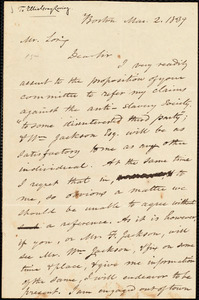 Boston Mar. 2. 1839
Mr. Loring
Dear Sir
I very readily
assent to the proposition of your
committee to refer my claims
against the anti-slavery Society
to some disinterested third party;
& Wm Jackson Esq. will be as
satisfactory to me as any other
individual. At the same time
I regret that in
so obvious a matter we
should be unable to agree without
a reference. As it is however
if you, or Mr. F. Jackson, will
see Mr. Wm Jackson, & fix on some
time & place, & give me information
of the same, I will endeavor to be
present. I am engaged out of town